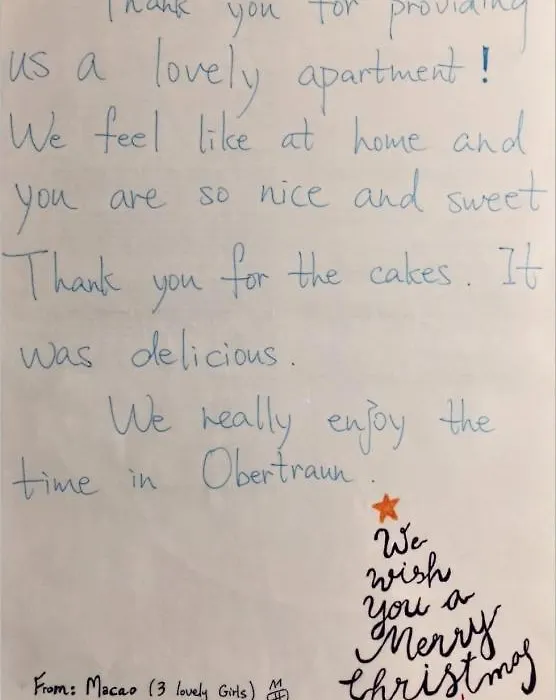 Thank you for providing
us a lovely apartment!
We feel like at home and
you are so nice and sweet
Thank you for the cakes. It
was delicious.
We really enjoy the
time in Obertraun.
We
wish
You a
Merry
Christmas
From: Macao (3 lovely Girls)